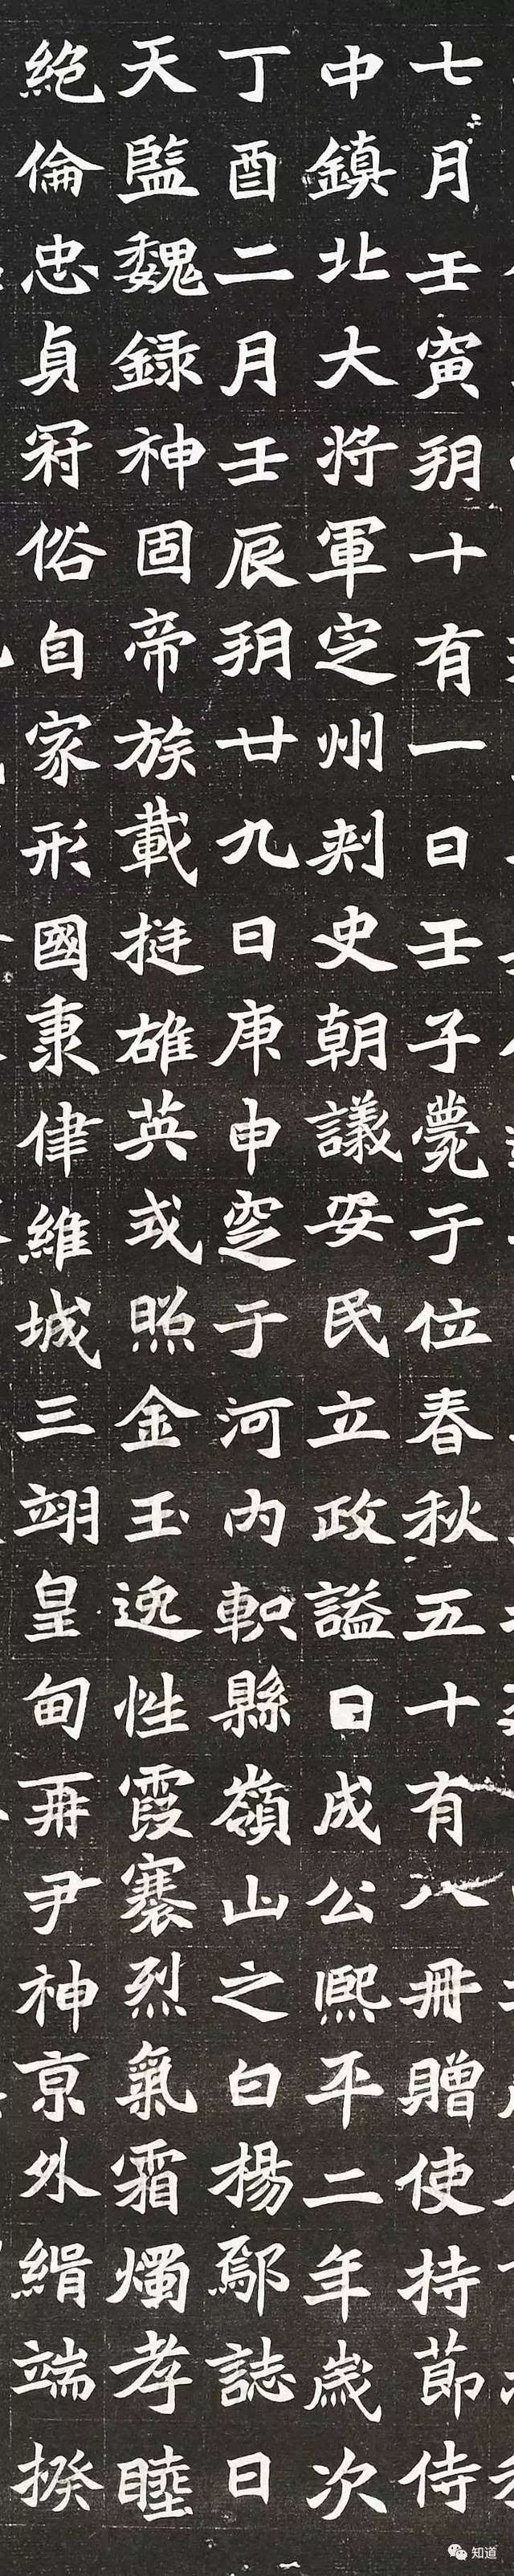 七月壬寅朔十有一日壬子薨于位春秋五十有八冊贈使持節侍
中鎮北大将軍定州刺史朝議安民立政謚曰成公熙平二年歲次
丁酉二月壬辰朔廿九日庚申窆于河內軹縣嶺山之白楊鄔誌曰
天監魏錄神固帝族載挺雄英或照金玉逸性霞褰烈氣霜燭孝睦
絶倫忠貞冠俗自家形國秉律維城三翊皇甸再尹神京外緝端揆
知道